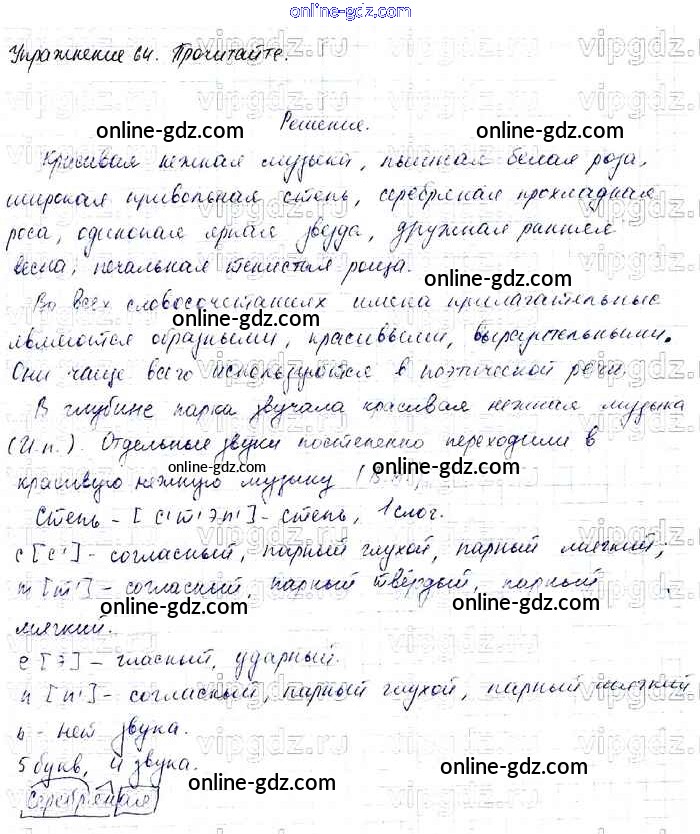 online-gdz.com
Упражнение 64. Прочитайте.
Решение.
Красивая нежная музыка, пышная белая роза,
широкая привольная степь, серебряная прохладная
роса, одинокая яркая звезда, дружная ранняя
весна, печальная тенистая роща.
Во всех словосочетаниях имена прилагательные
являются образными, красивыми, выразительными.
Они чаще всего используются в поэтической речи.
В глубине парка звучала красивая нежная музыка
(И.п.). Отдельные звуки постепенно переходили в
красивую нежную музыку (В.п.).
Степь – [с'т'эп'] – степь, 1 слог.
с [с'] – согласный, парный глухой, парный мягкий;
т [т'] – согласный, парный твёрдый, парный
мягкий.
е [э] – гласный, ударный.
п [п'] – согласный, парный глухой, парный мягкий
ь – нет звука.
5 букв, 4 звука.
Серебряная